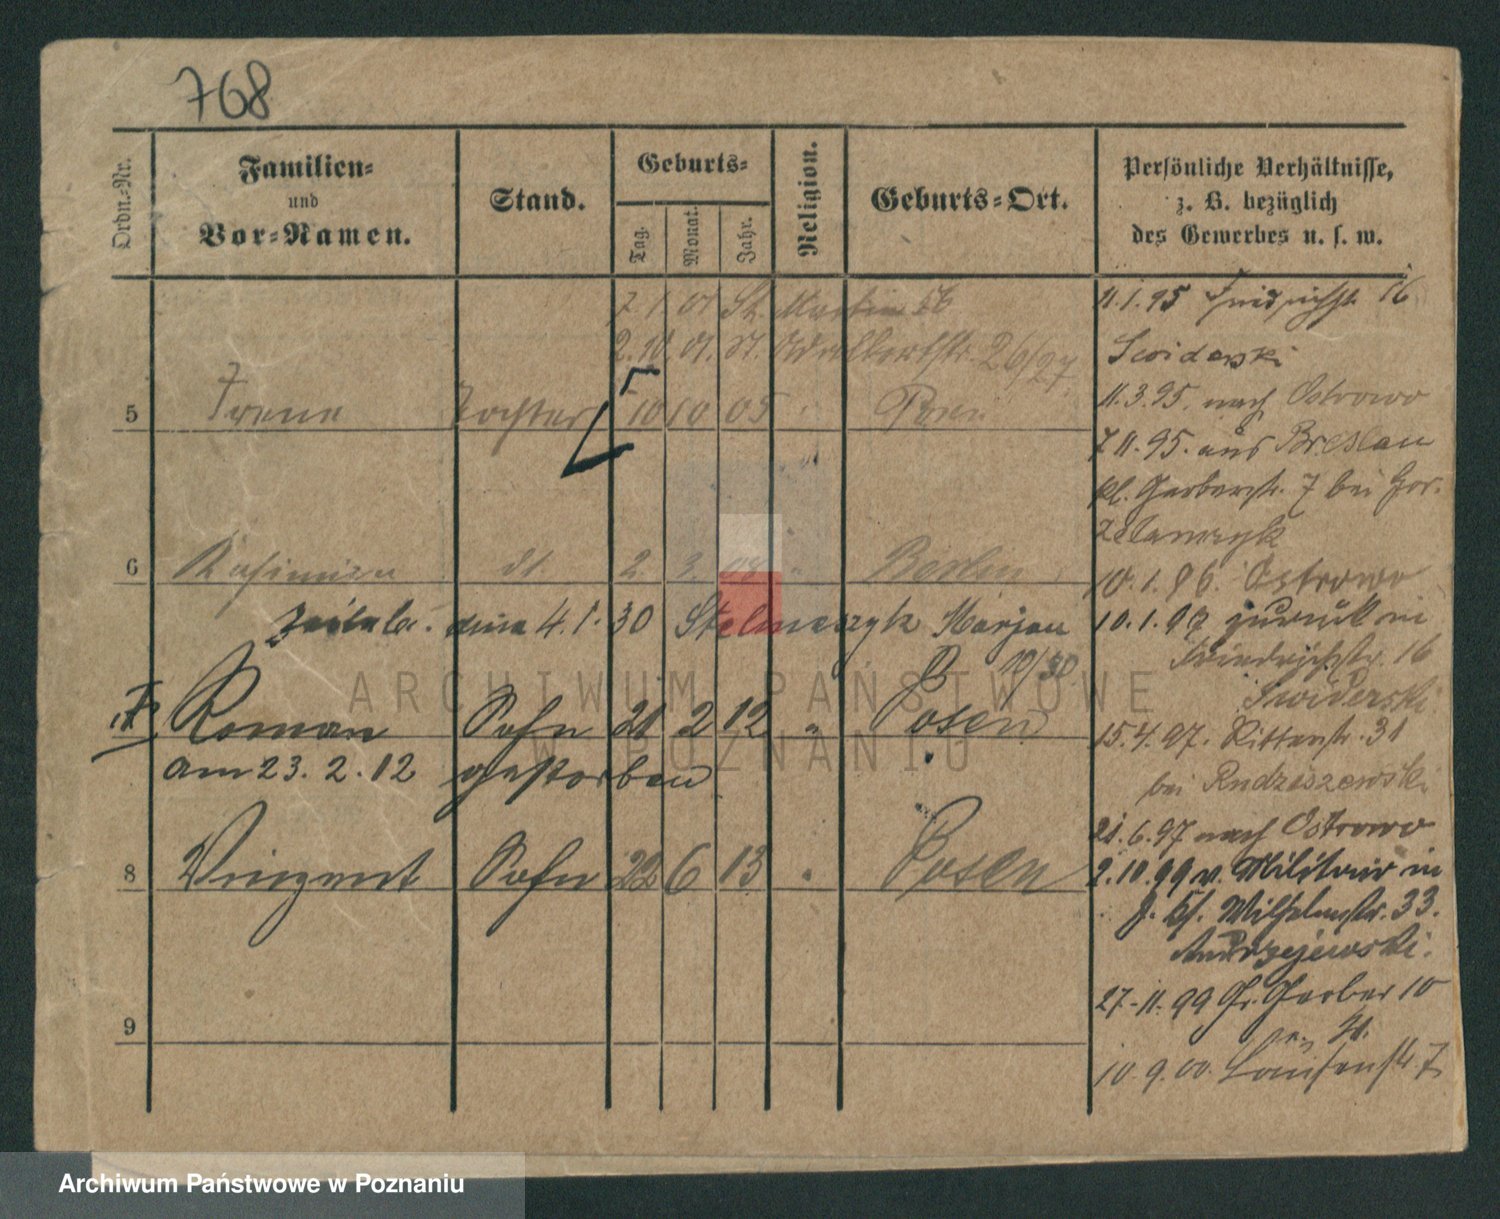 768
Ordn.-Nr.
Familien-
und
Vor-Namen.
Stand.
Geburts-
Tag.
Monat.
Jahr.
Religion.
Geburts-Ort.
Persönliche Verhältnisse,
z. B. bezüglich
des Gewerbes u. s. w.
7.1.01 St. Martin 56
2.10.01. St. Adalbertstr. 26/27
5 Irene Tochter 10 10 05 Posen
6 Kasimira dt. 2. 3. 08 " Berlin
dnia 4.1.30 Stelmaszyk Marjan
10/30
7 Roman Sohn 21 2 12 " Posen
am 23. 2. 12 gestorben
8 Vinzent Sohn 22 6 13 " Posen
9
11.1.95 Friedrichstr. 16
Swiderski
11.3.95. nach Ostrowo
7.11.95. aus Breslau
kl. Gerberstr. 7 bei
10.1.96. Ostrowo
10.1.97 zurück in
Friedrichstr. 16
Swiderski
15.4.97. Ritterstr. 31
bei Rudziszewski
21.6.97 nach Ostrowo
2.10.99 v. Militair in
Wilhelmstr. 33.
Andrzejewski.
27.11.99 Gr. Gerber 10
10.9.00. Louisenstr. 7
ARCHIWUM PAŃSTWOWE
W POZNANIU
Archiwum Państwowe w Poznaniu